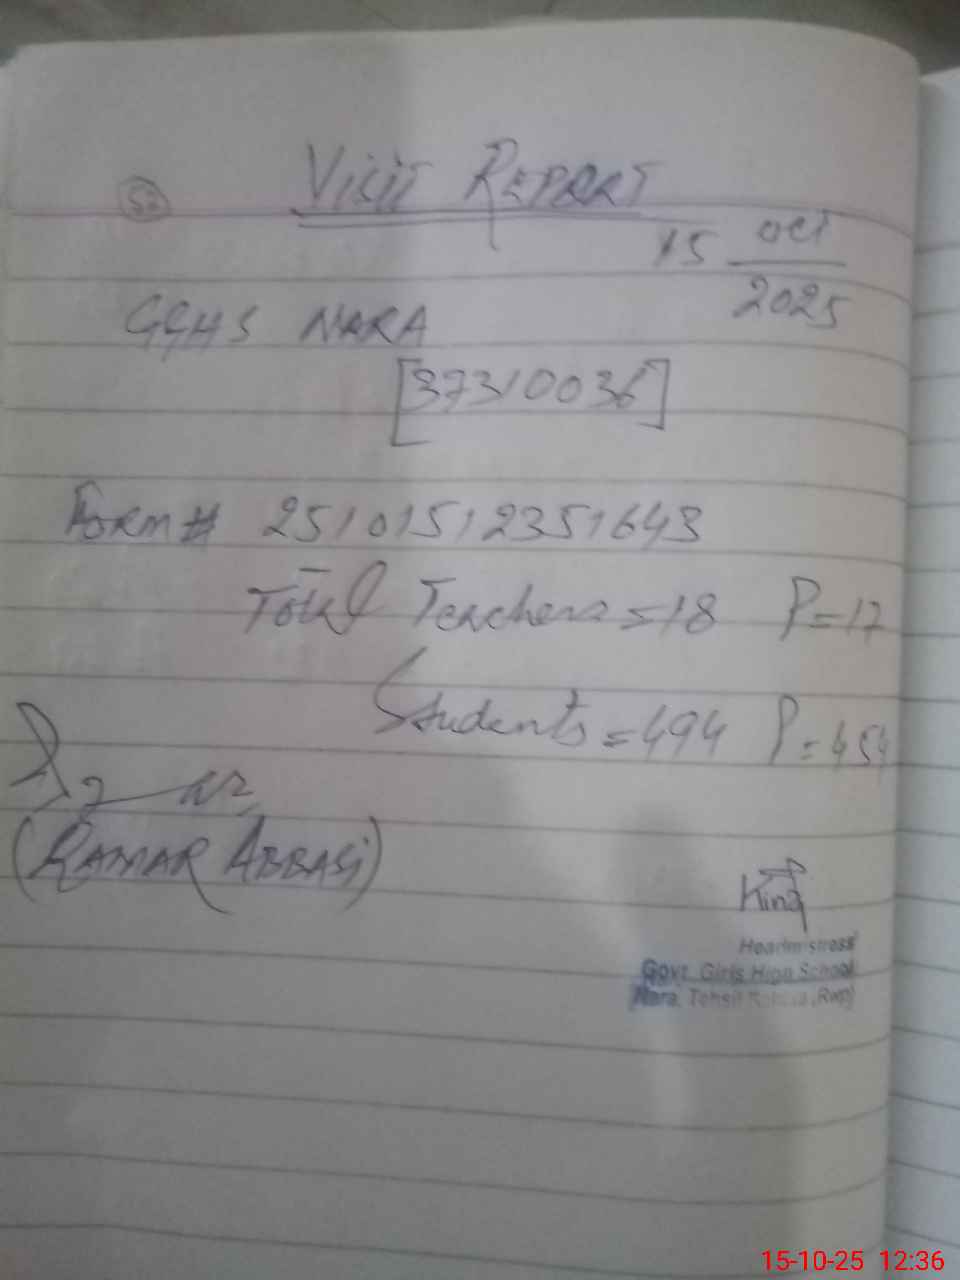 VISIT REPORT
52
15 Oct
2025
GGHS NARA
[37310036]
Form # 25101512351643
Total Teachers = 18 P = 17
Students = 494 P = 454
(QAMAR ABBASI)
Headmistress
Govt. Girls High School
Nara, Tehsil (Rwp)
15-10-25 12:36